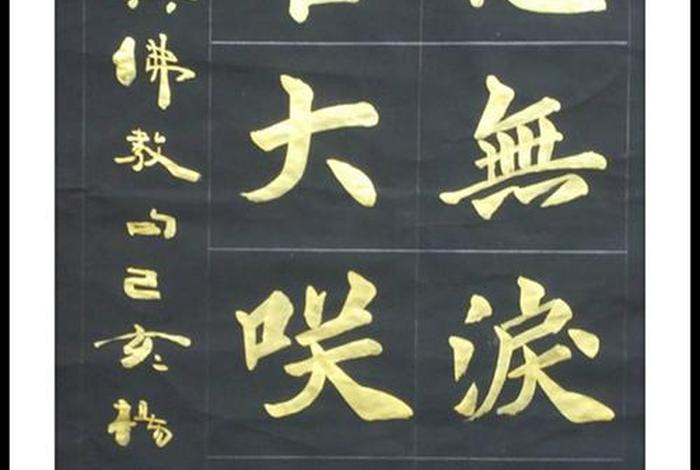 無淚
大咲
佛教句己亥楊